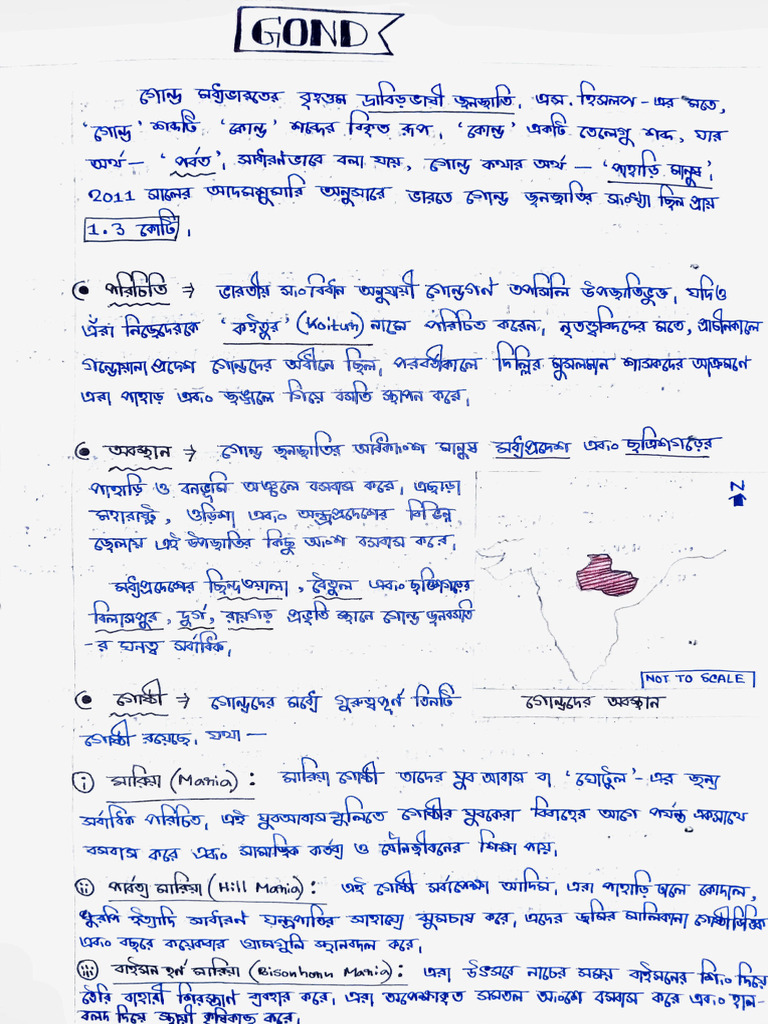 GOND
গোন্ড মধ্যভারতের বৃহত্তম দ্রাবিড়ভাষী জনজাতি, এস. হিসলপ-এর মতে,
'গোন্ড' শব্দটি 'কোন্ড' শব্দের বিকৃত রূপ, 'কোন্ড' একটি তেলেগু শব্দ, যার
অর্থ — 'পর্বত', সাধারণভাবে বলা যায়, গোন্ড কথার অর্থ — 'পাহাড়ি মানুষ',
2011 সালের আদমসুমারি অনুসারে ভারতে গোন্ড জনজাতির সংখ্যা ছিল প্রায়
1.3 কোটি,
পরিচিতি ⇒ ভারতীয় সংবিধান অনুযায়ী গোন্ডগণ তপসিলি উপজাতিভুক্ত, যদিও
এঁরা নিজেদেরকে 'কইতুর' (Koitur) নামে পরিচিত করেন, নৃতত্ত্ববিদদের মতে, প্রাচীনকালে
গন্ডোয়ানা প্রদেশ গোন্ডদের অধীনে ছিল, পরবর্তীকালে দিল্লির মুসলমান শাসকদের আক্রমণে
এরা পাহাড় এবং জঙ্গলে গিয়ে বসতি স্থাপন করে,
অবস্থান ⇒ গোন্ড জনজাতির অধিকাংশ মানুষ মধ্যপ্রদেশ এবং ছত্তিশগড়ের
পাহাড়ি ও বনভূমি অঞ্চলে বসবাস করে, এছাড়া
মহারাষ্ট্র, ওড়িশা এবং অন্ধ্রপ্রদেশের বিভিন্ন
জেলায় এই উপজাতির কিছু অংশ বসবাস করে,
মধ্যপ্রদেশের ছিন্দওয়ালা, বৈতুল এবং ছত্তিশগড়ের
বিলাসপুর, দুর্গ, রায়গড় প্রভৃতি স্থানে গোন্ড জনবসতি
-র ঘনত্ব সর্বাধিক,
N
NOT TO SCALE
গোন্ডদের অবস্থান
গোষ্ঠী ⇒ গোন্ডদের মধ্যে গুরুত্বপূর্ণ তিনটি
গোষ্ঠী রয়েছে, যথা —
(i) মারিয়া (Maria) : মারিয়া গোষ্ঠী তাদের যুব আবাস বা 'ঘোটুল'-এর জন্য
সর্বাধিক পরিচিত, এই যুবআবাস গুলিতে গোষ্ঠীর যুবকেরা বিবাহের আগে পর্যন্ত একসাথে
বসবাস করে এবং সামাজিক কর্তব্য ও যৌনজীবনের শিক্ষা পায়,
(ii) পার্বত্য মারিয়া (Hill Maria) : এই গোষ্ঠী সর্বাপেক্ষা আদিম, এরা পাহাড়ি ঢালে কোদাল,
খুরপি ইত্যাদি সাধারণ যন্ত্রপাতির সাহায্যে ঝুমচাষ করে, এদের জমির মালিকানা গোষ্ঠীভিত্তিক
এবং বছরে কয়েকবার গ্রামগুলি স্থানবদল করে,
(iii) বাইসন হর্ন মারিয়া (Bisonhorn Maria) : এরা উৎসবে নাচের সময় বাইসনের শিং দিয়ে
তৈরি বাহারী শিরস্ত্রাণ ব্যবহার করে, এরা অপেক্ষাকৃত সমতল অংশে বসবাস করে এবং হাল-
বলদ দিয়ে স্থায়ী কৃষিকাজ করে,